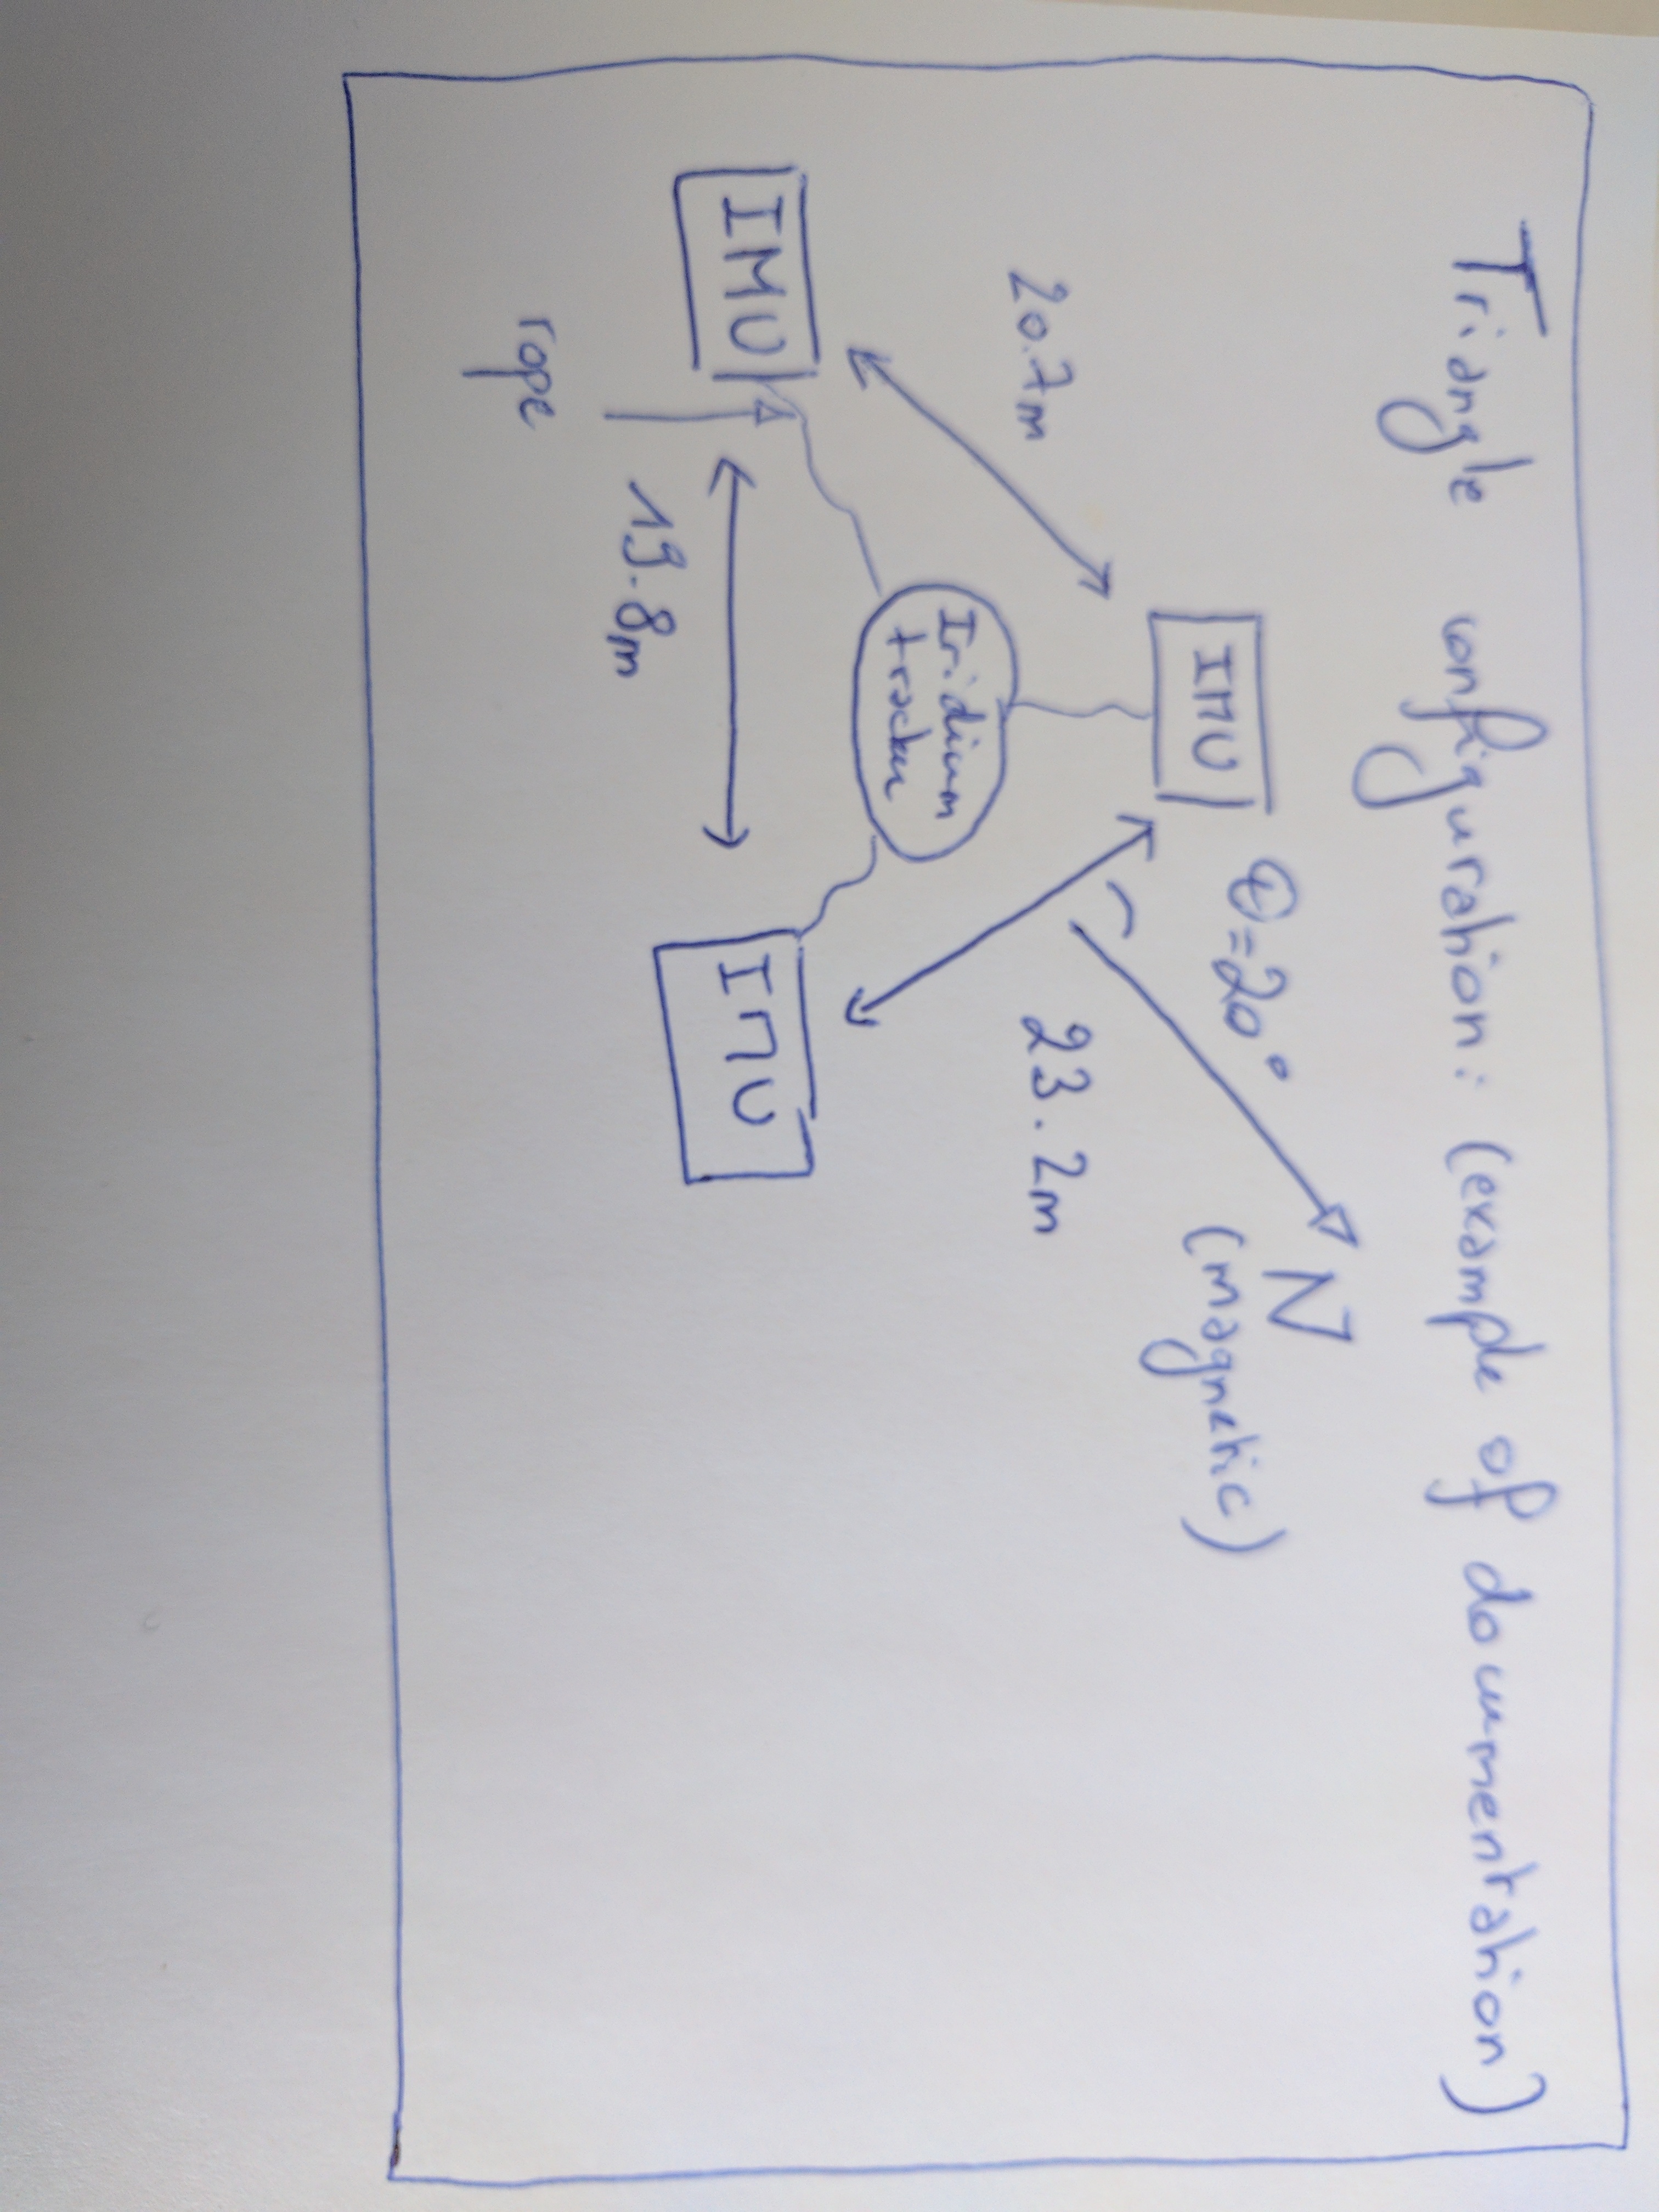 Triangle configuration: (example of documentation)
IMU
θ=20°
N
(magnetic)
20.7m
23.2m
Iridium
tracker
IMU
IMU
19.8m
rope